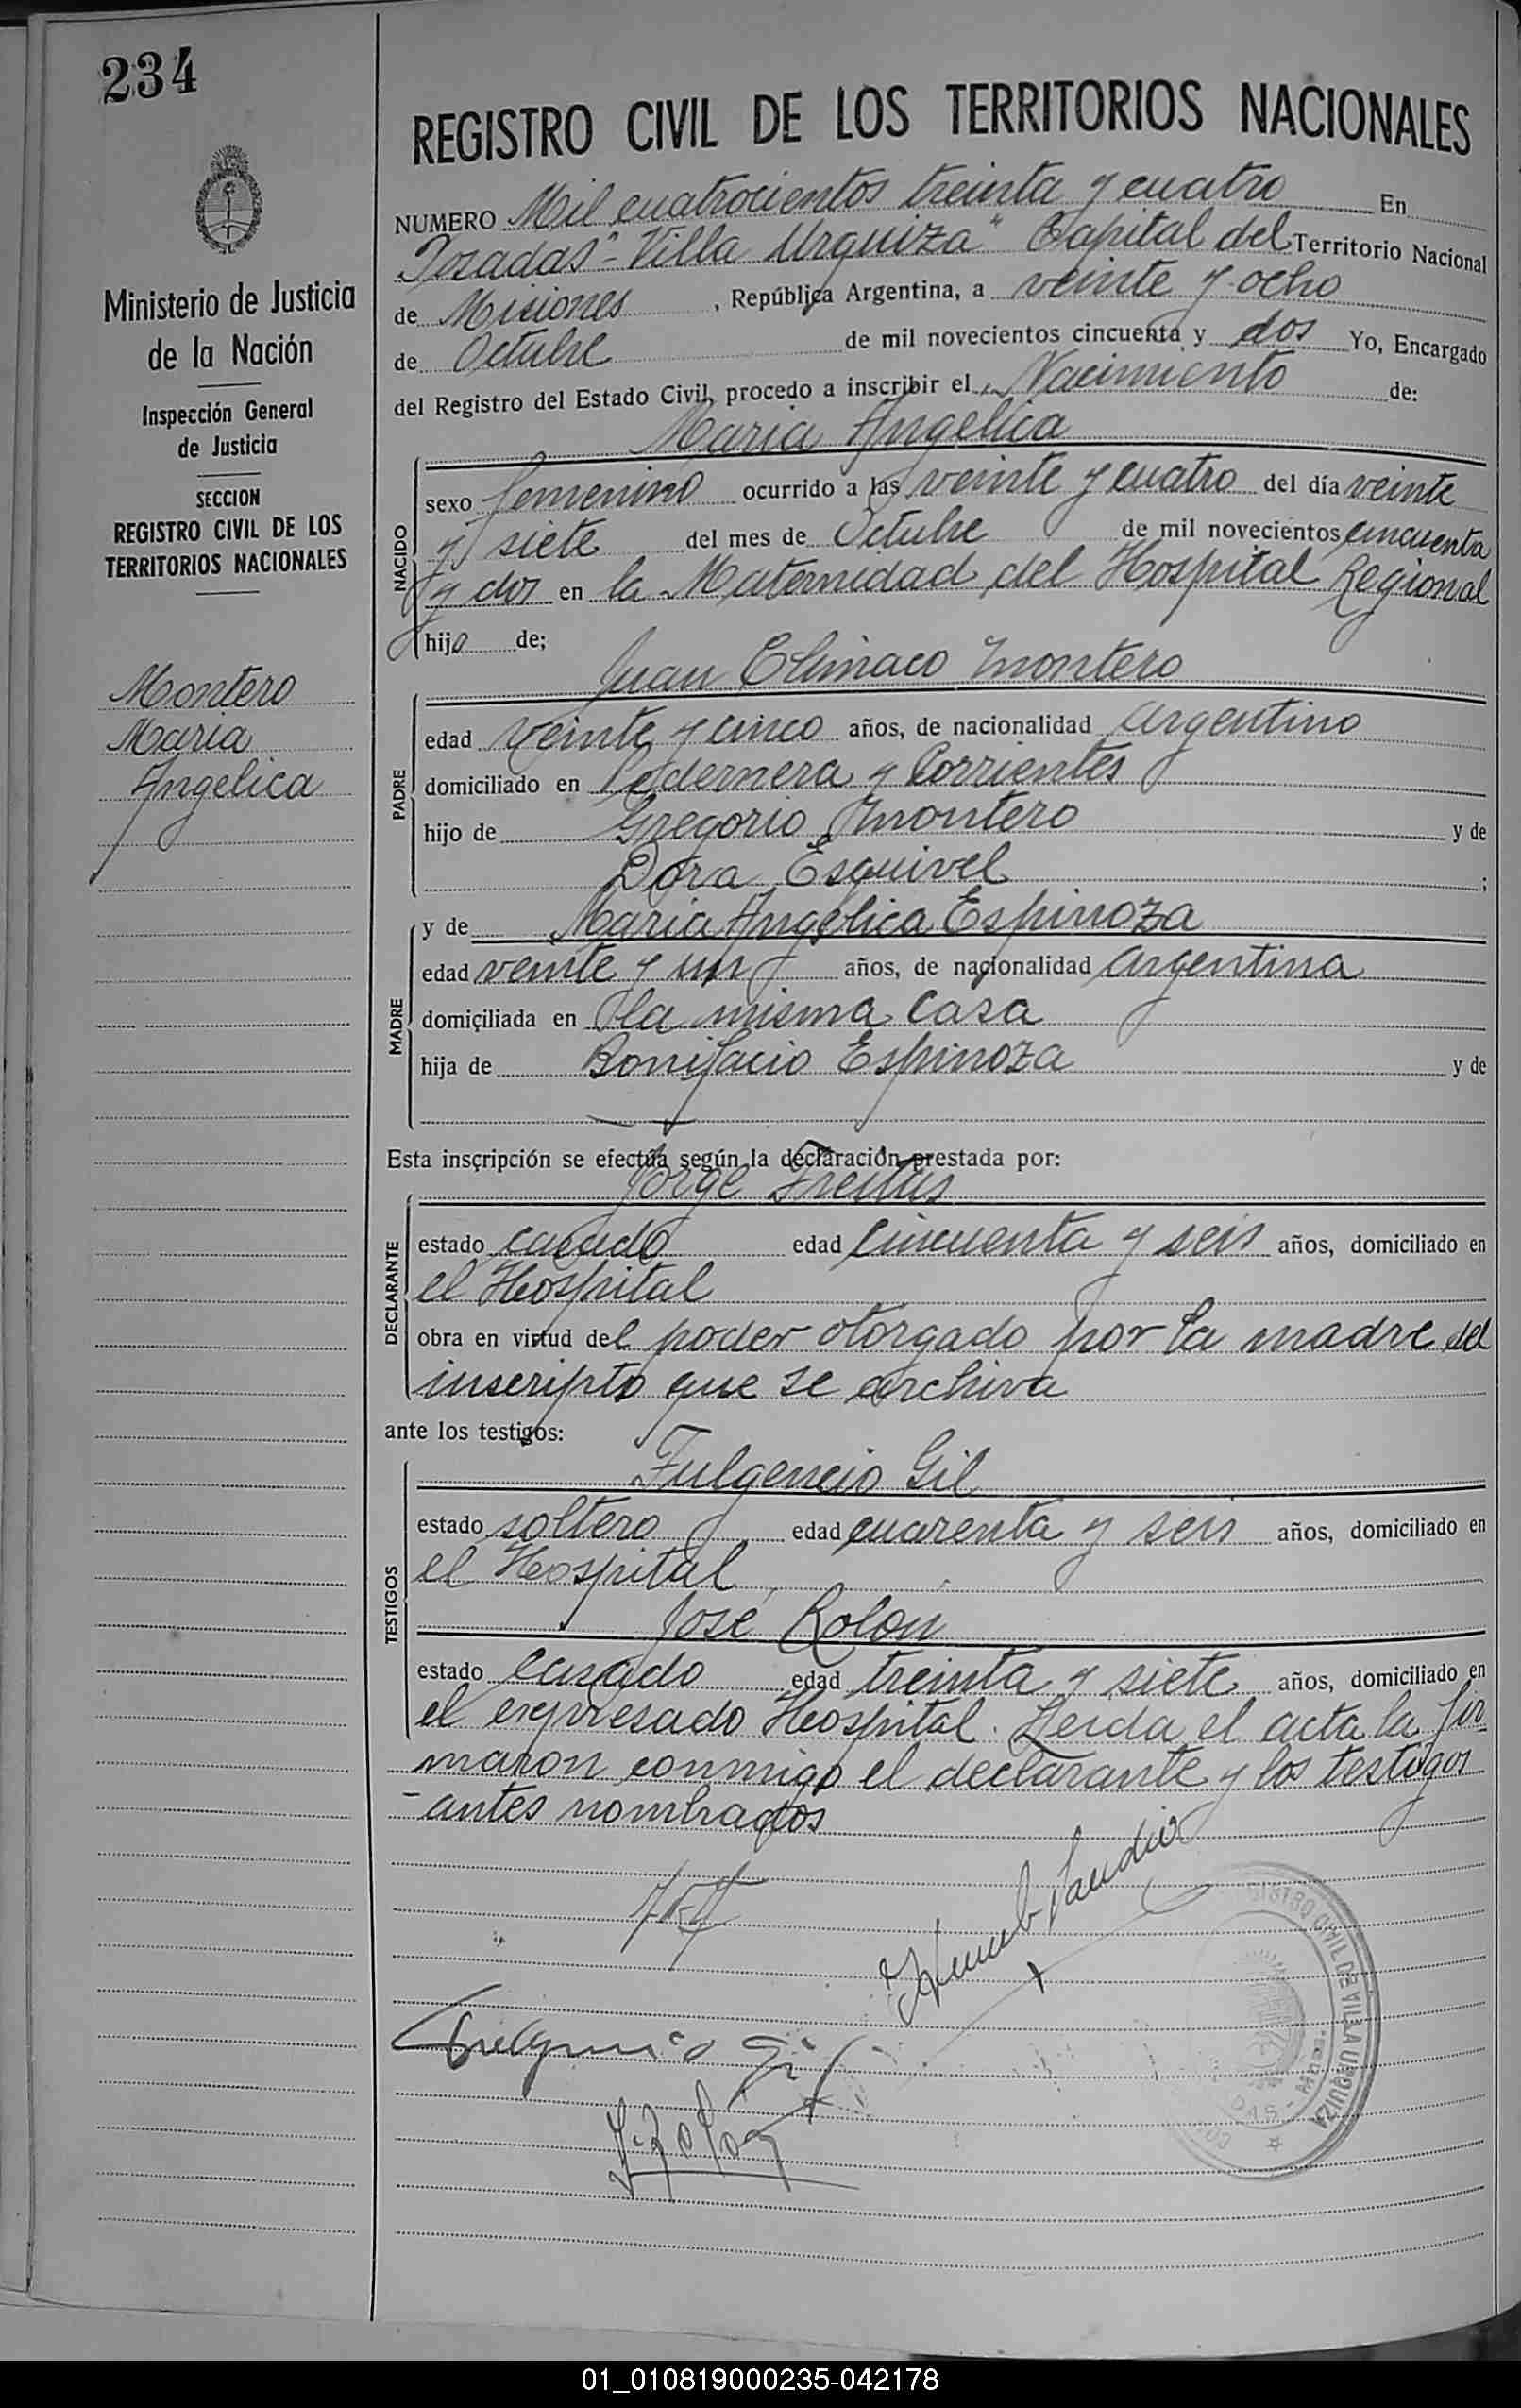 234
Ministerio de Justicia
de la Nación
Inspección General
de Justicia
SECCION
REGISTRO CIVIL DE LOS
TERRITORIOS NACIONALES
Montero
Maria
Angelica
REGISTRO CIVIL DE LOS TERRITORIOS NACIONALES
NUMERO Mil cuatrocientos treinta y cuatro En
Posadas "Villa Urquiza" Capital del Territorio Nacional
de Misiones, República Argentina, a veinte y ocho
de Octubre de mil novecientos cincuenta y dos Yo, Encargado
del Registro del Estado Civil, procedo a inscribir el Nacimiento de:
Maria Angelica
NACIDO
sexo femenino ocurrido a las veinte y cuatro del día veinte
y siete del mes de Octubre de mil novecientos cincuenta
y dos en la Maternidad del Hospital Regional
hija de;
Juan Climaco Montero
PADRE
edad veinte y cinco años, de nacionalidad argentino
domiciliado en Pedernera y Corrientes
hijo de Gregorio Montero y de
Dora Esquivel ;
y de Maria Angelica Espinoza
MADRE
edad veinte y un años, de nacionalidad argentina
domiciliada en la misma casa
hija de Bonifacio Espinoza y de
Esta inscripción se efectúa según la declaración prestada por:
Jorge Freitas
DECLARANTE
estado casado edad cincuenta y seis años, domiciliado en
el Hospital
obra en virtud del poder otorgado por la madre del
inscripto que se archiva
ante los testigos:
Fulgencio Gil
TESTIGOS
estado soltero edad cuarenta y seis años, domiciliado en
el Hospital
José Rolon
estado casado edad treinta y siete años, domiciliado en
el expresado Hospital. Leida el acta la fir
maron conmigo el declarante y los testigos
antes nombrados
Fulgencio Gil
J. Rolon
REGISTRO CIVIL DE VILLA URQUIZA
01_010819000235-042178